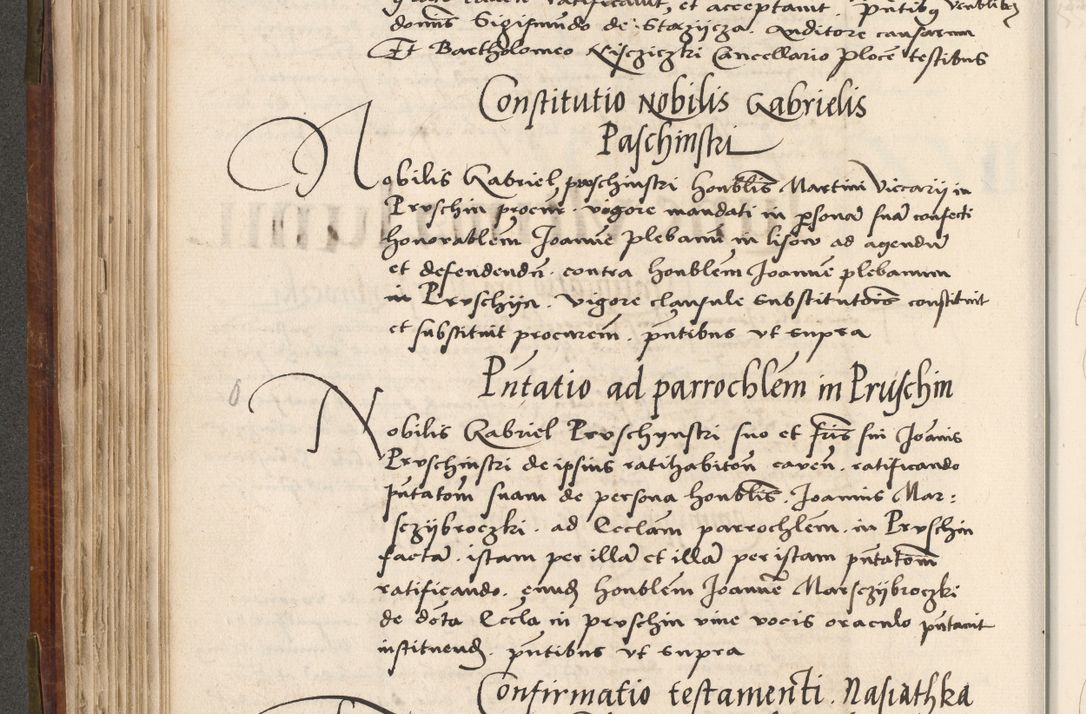 ratificavit, et acceptavit. Pntibus Venblibus
domis Sigismundo de Stazijcza. Auditore causarum
Et Bartholomeo Cancellario Plocen testibus
Constitutio Nobilis Gabrielis
Paschinski
Nobilis Gabriel proschinski Honblis Martini Viccarij in
Pruschin procur. vigore mandati in psonam suam confecti
honorablem Joannem plebanum in lisow ad agendum
et defendendum. contra Honblem Joannem plebanum
in Pruschijn. Vigore clausule substitutois constituit
et substituit procurem. pntibus ut supra
Pntatio ad parrochlem in Pruschin
Nobilis Gabriel Pruschynski suo et fris sui Joannis
Pruschinski de ipsius ratihabiton caven. ratificando
pntatom suam de persona honblis. Joannis Mar:
sczijbroczki. ad Ecclam parrochlem. in Pruschin
factam. istam per illam et illam per istam pntatom
ratificando. eundem honblem Joannem Marsczijbroczki
de dota Eccla in pruschin vive vocis oraculo pntavit
instituend. pntibus ut supra
Confirmatio testamenti. Nasiathka